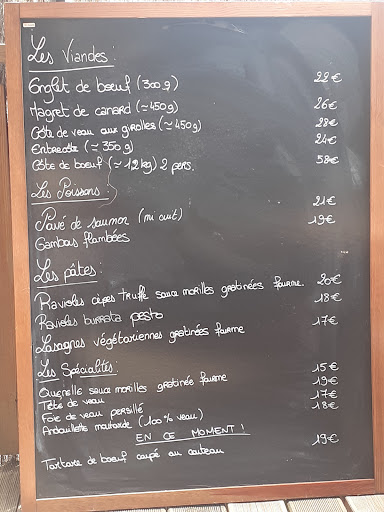 Les Viandes:
Onglet de boeuf (300g) 22€
Magret de canard (≃450g) 26€
Côte de veau aux girolles (≃450g) 28€
Entrecôte (≃350g) 24€
Côte de boeuf (≃1,2kg) 2 pers. 58€
Les Poissons:
Pavé de saumon (mi cuit) 21€
Gambas flambées 19€
Les pâtes:
Ravioles cèpes truffe sauce morilles gratinées fourme. 20€
Ravioles burrata pesto 18€
Lasagnes végétariennes gratinées fourme 17€
Les Spécialités:
Quenelle sauce morilles gratinée fourme 15€
Tête de veau 19€
Foie de veau persillé 17€
Andouillette moutarde (100% veau) 18€
EN CE MOMENT!
Tartare de boeuf coupé au couteau 19€